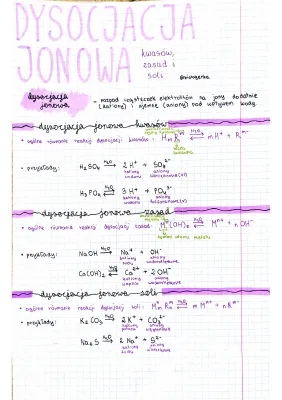 DYSOCJACJA
JONOWA
kwasów,
zasad i
soli
dysocjacja
jonowa
- rozpad cząsteczek elektrolitów na jony dodatnie
(kationy) i ujemne (aniony) pod wpływem wody.
dysocjacja jonowa kwasów
• ogólne równanie reakcji dysocjacji kwasów : HₘR H₂O ⇌ m H⁺ + Rᵐ⁻
• przykłady:
H₂SO₄ H₂O ⇌ 2 H⁺ + SO₄²⁻
kationy wodoru
aniony
H₃PO₄ H₂O ⇌ 3 H⁺ + PO₄³⁻
kationy wodoru
aniony
dysocjacja jonowa zasad
• ogólne równanie reakcji dysocjacji zasad: M(OH)ₙ H₂O ⇌ Mⁿ⁺ + n OH⁻
symbol jonu metalu
• przykłady:
NaOH H₂O → Na⁺ + OH⁻
kationy sodu
aniony wodorotlenkowe
Ca(OH)₂ H₂O ⇌ Ca²⁺ + 2 OH⁻
kationy wapnia
aniony wodorotlenkowe
dysocjacja jonowa soli
• ogólne równanie reakcji dysocjacji soli : MₘRₙ H₂O ⇌ m Mⁿ⁺ + n Rᵐ⁻
• przykłady:
K₂CO₃ H₂O → 2 K⁺ + CO₃²⁻
kationy potasu
aniony węglanowe
Na₂S H₂O → 2 Na⁺ + S²⁻
kationy sodu
aniony siarczkowe